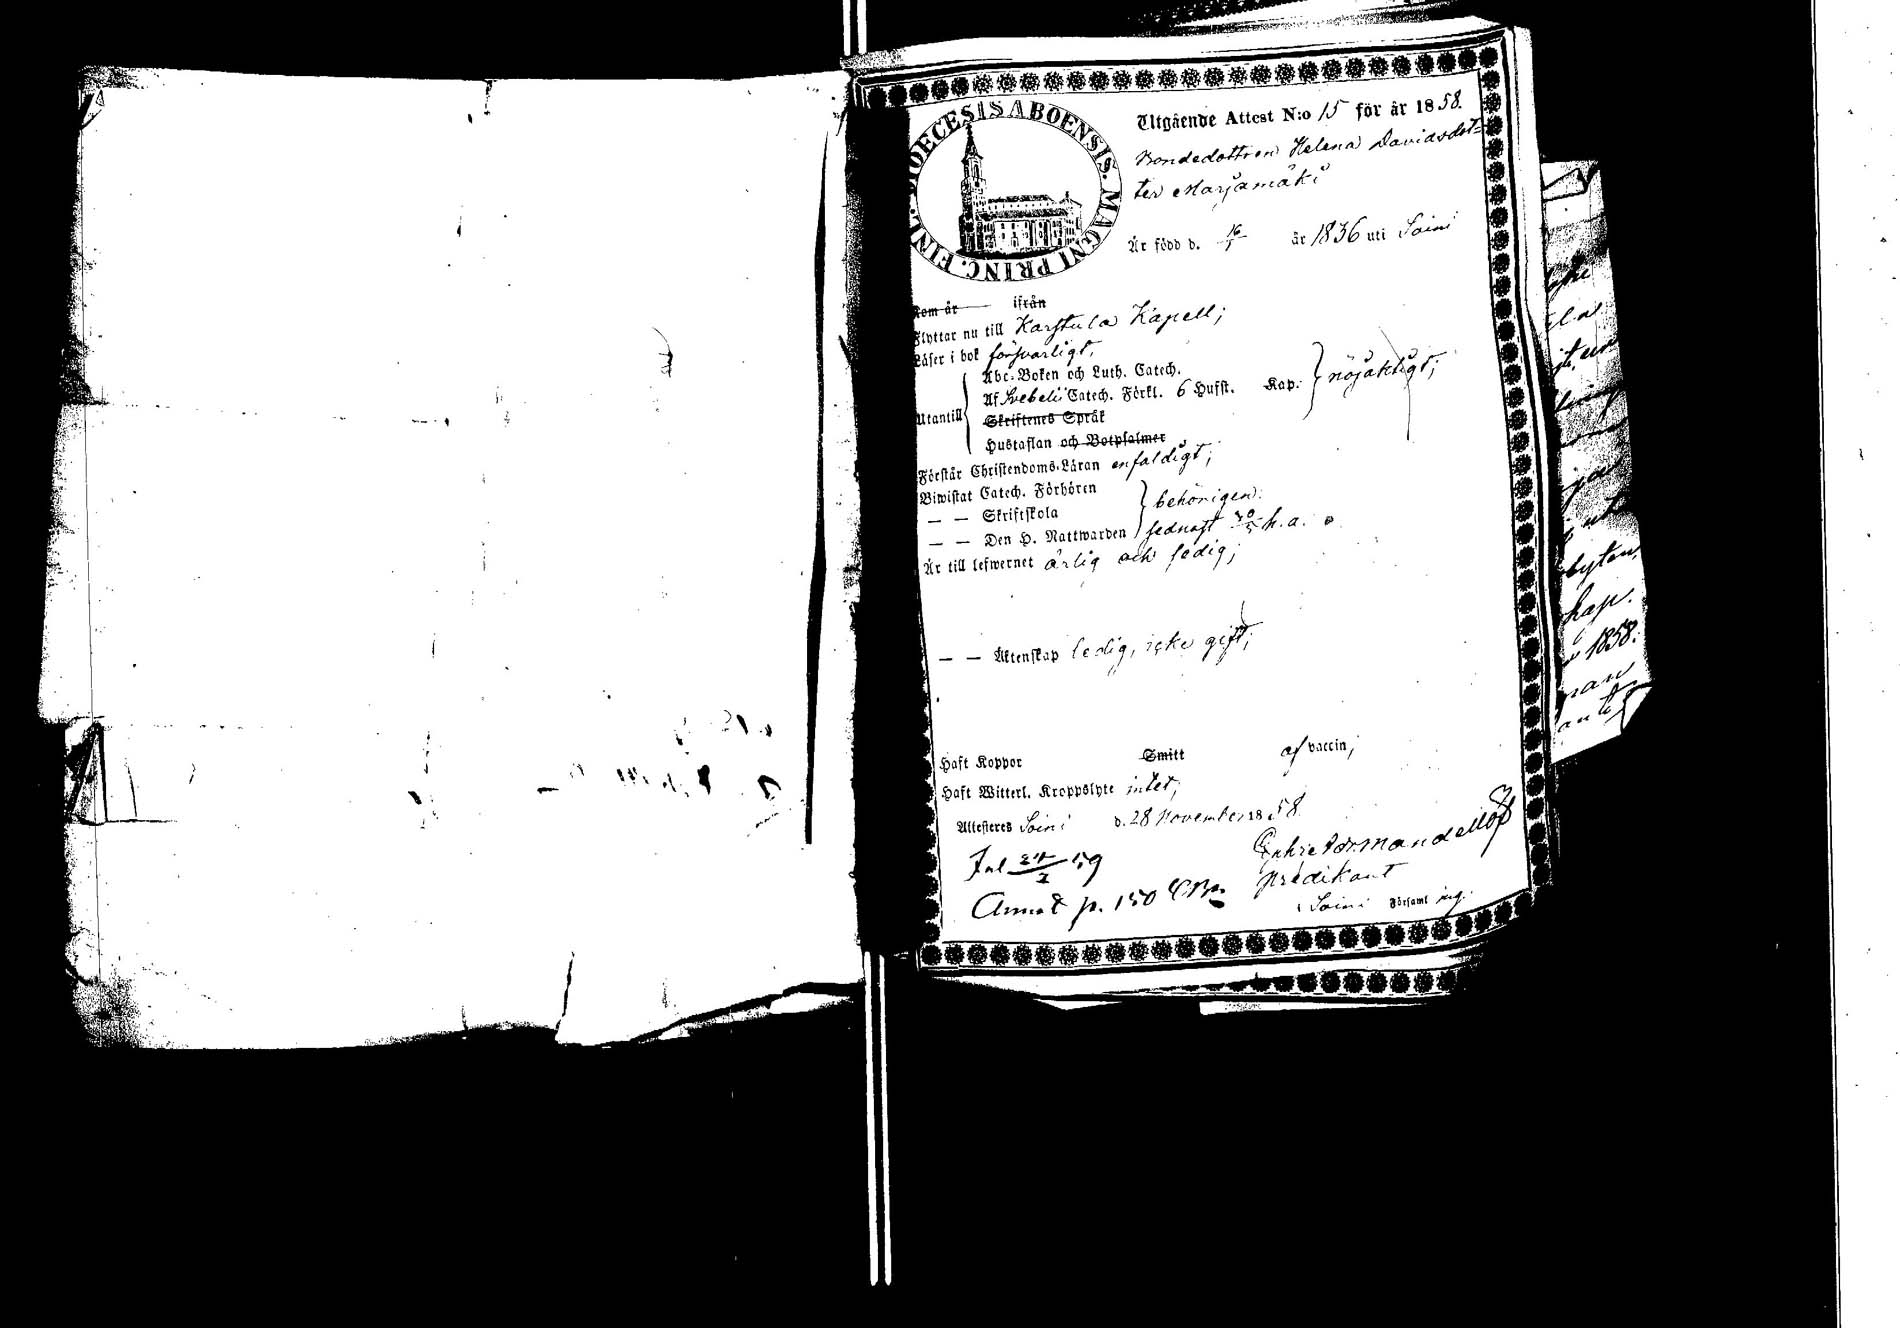 DIOECESIS ABOENSIS. MAGNI PRINC. FINL.
Utgående Attest N:o 15 för år 1858.
Bondedottren Helena Davidsdot=
ter Marjamäki
Är född d. 16/1 år 1836 uti Soini
Kom år ifrån
Flyttar nu till Karstula Kapell;
Läser i bok försvarligt,
Abc-Boken och Luth. Catech.
Utantill Af Svebelii Catech. Förkl. 6 Hufst. Kap. nöjaktigt;
Skriftenes Språk
Hustaflan och Botpsalmer
Förstår Christendoms-Läran enfaldigt;
Biwistat Catech. Förhören
— — Skriftskola behörigen:
— — Den H. Nattwarden sednast h.a.
Är till lefwernet ärlig och sedig;
— — Äktenskap ledig, icke gift;
Haft Koppor Smitt af vaccin,
Haft Witterl. Kroppslyte intet;
Attesteras Soini d. 28 November 1858.
predikant
i Soini Församl ing.
Annot p. 150
ja
byten,
kap.
1858.